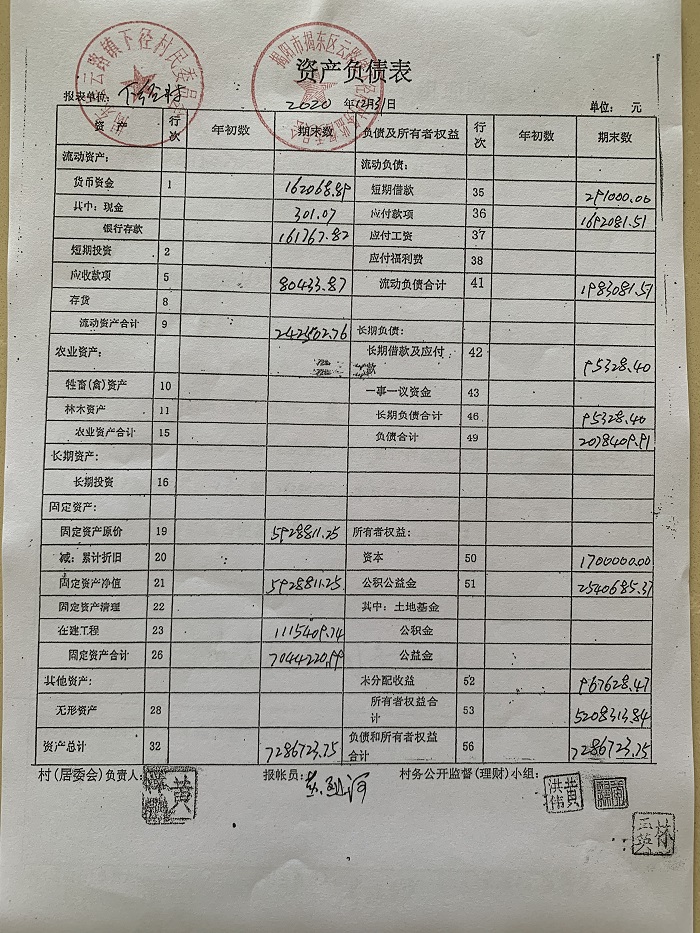 资产负债表
云路镇下径村民委员会
揭阳市揭东区云路
报表单位: 下径村
2020 年12月31日
单位: 元
资产 行次 年初数 期末数 负债及所有者权益 行次 年初数 期末数
流动资产: 流动负债:
货币资金 1 162068.89 短期借款 35 291000.00
其中: 现金 301.07 应付款项 36 1692081.51
银行存款 161767.82 应付工资 37
短期投资 2 应付福利费 38
应收款项 5 80433.87 流动负债合计 41 1983081.51
存货 8
流动资产合计 9 242502.76 长期负债:
农业资产: 长期借款及应付款 42 95328.40
牲畜(禽)资产 10 一事一议资金 43
林木资产 11 长期负债合计 46 95328.40
农业资产合计 15 负债合计 49 2078409.91
长期资产:
长期投资 16
固定资产:
固定资产原价 19 5928811.25 所有者权益:
减: 累计折旧 20 资本 50 1700000.00
固定资产净值 21 5928811.25 公积公益金 51 2540685.37
固定资产清理 22 其中: 土地基金
在建工程 23 1115409.74 公积金
固定资产合计 26 7044220.99 公益金
其他资产: 未分配收益 52 967628.47
无形资产 28 所有者权益合计 53 5208313.84
资产总计 32 7286723.75 负债和所有者权益合计 56 7286723.75
村(居委会)负责人: 报帐员: 村务公开监督(理财)小组:
黄
黄洪伟
林